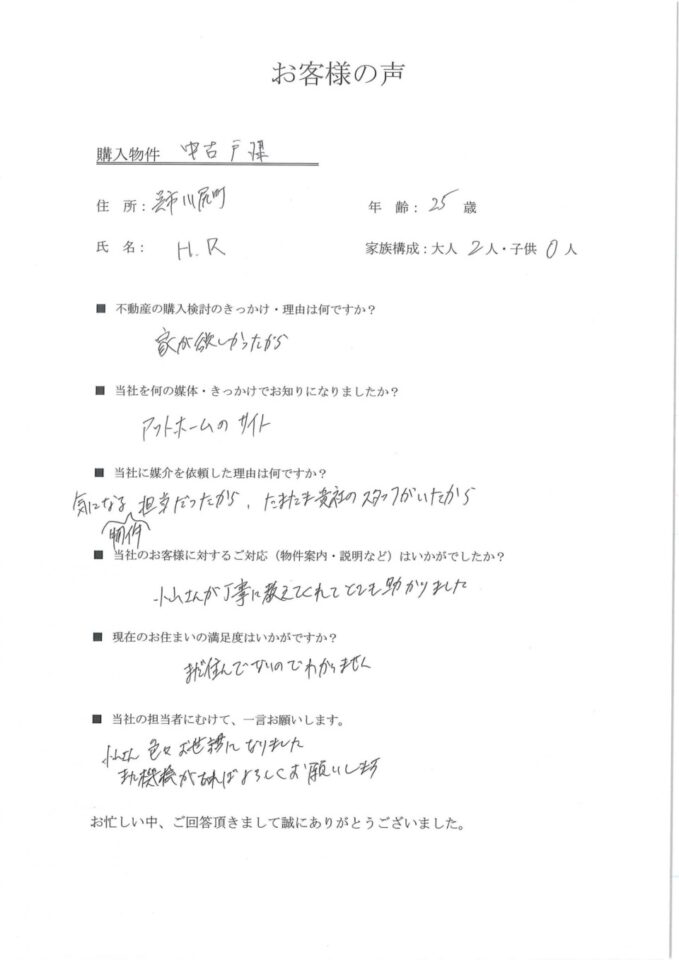 お客様の声
購入物件 中古戸建
住 所：呉市川尻町
年 齢：25 歳
氏 名： H.R
家族構成：大人 2人・子供 0人
■ 不動産の購入検討のきっかけ・理由は何ですか？
家が欲しかったから
■ 当社を何の媒体・きっかけでお知りになりましたか？
アットホームのサイト
■ 当社に媒介を依頼した理由は何ですか？
気になる物件担当だったから、たまたま貴社のスタッフがいたから
■ 当社のお客様に対するご対応（物件案内・説明など）はいかがでしたか？
小山さんが丁寧に教えてくれてとても助かりました
■ 現在のお住まいの満足度はいかがですか？
まだ住んでないのでわかりません
■ 当社の担当者にむけて、一言お願いします。
小山さん 色々お世話になりました
また機機があればよろしくお願いします
お忙しい中、ご回答頂きまして誠にありがとうございました。